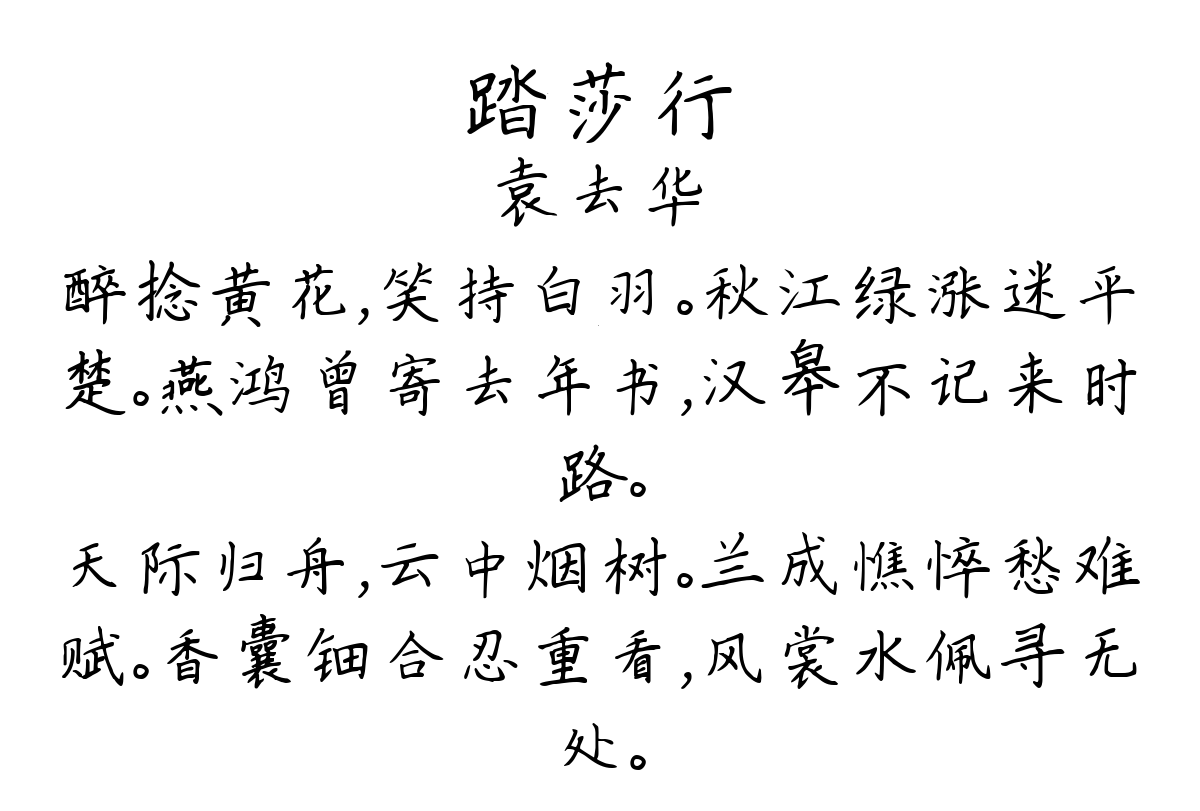 踏莎行
袁去华
醉捻黄花,笑持白羽。秋江绿涨迷平
楚。燕鸿曾寄去年书,汉皋不记来时
路。
天际归舟,云中烟树。兰成憔悴愁难
赋。香囊钿合忍重看,风裳水佩寻无
处。